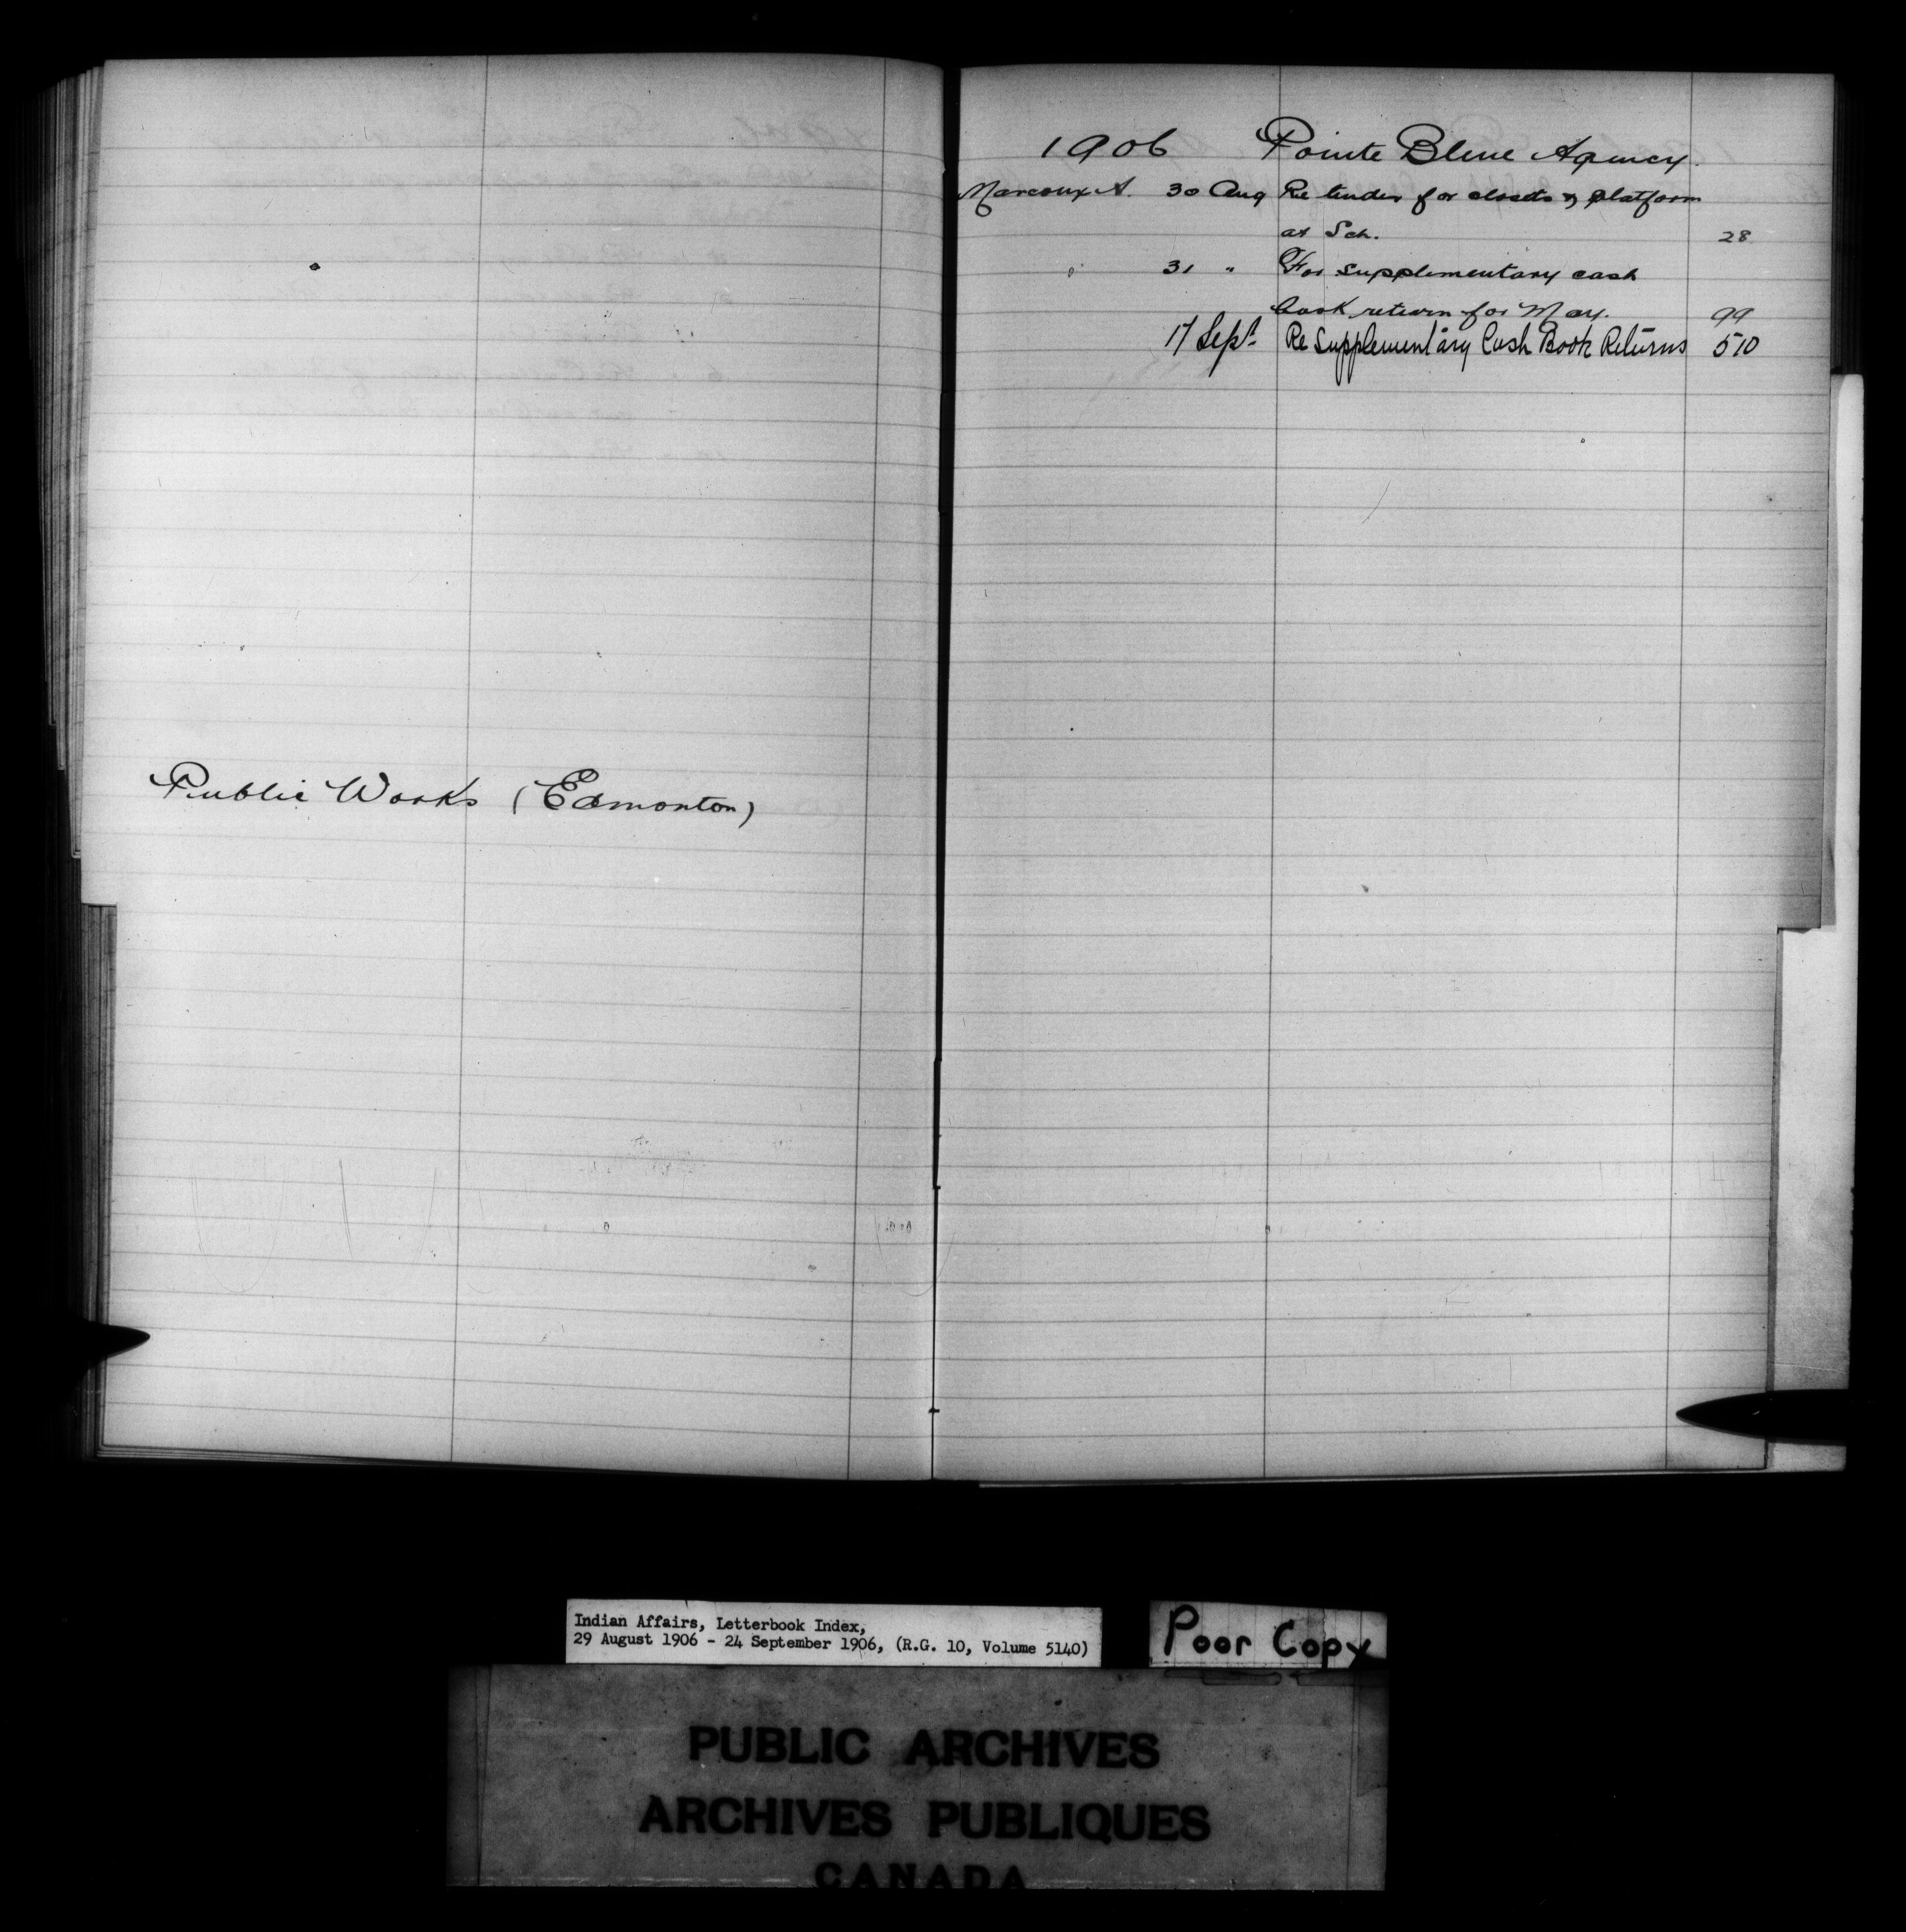 Public Works (Edmonton)
1906 Pointe Bleue Agency.
Marcoux A. 30 Aug Re tender for closets & platform
at Sch. 28
31 " For supplementary cash
book return for May. 99
17 Sept. Re Supplementary Cash Book Returns 510
Indian Affairs, Letterbook Index,
29 August 1906 - 24 September 1906, (R.G. 10, Volume 5140)
Poor Copy
PUBLIC ARCHIVES
ARCHIVES PUBLIQUES
CANADA